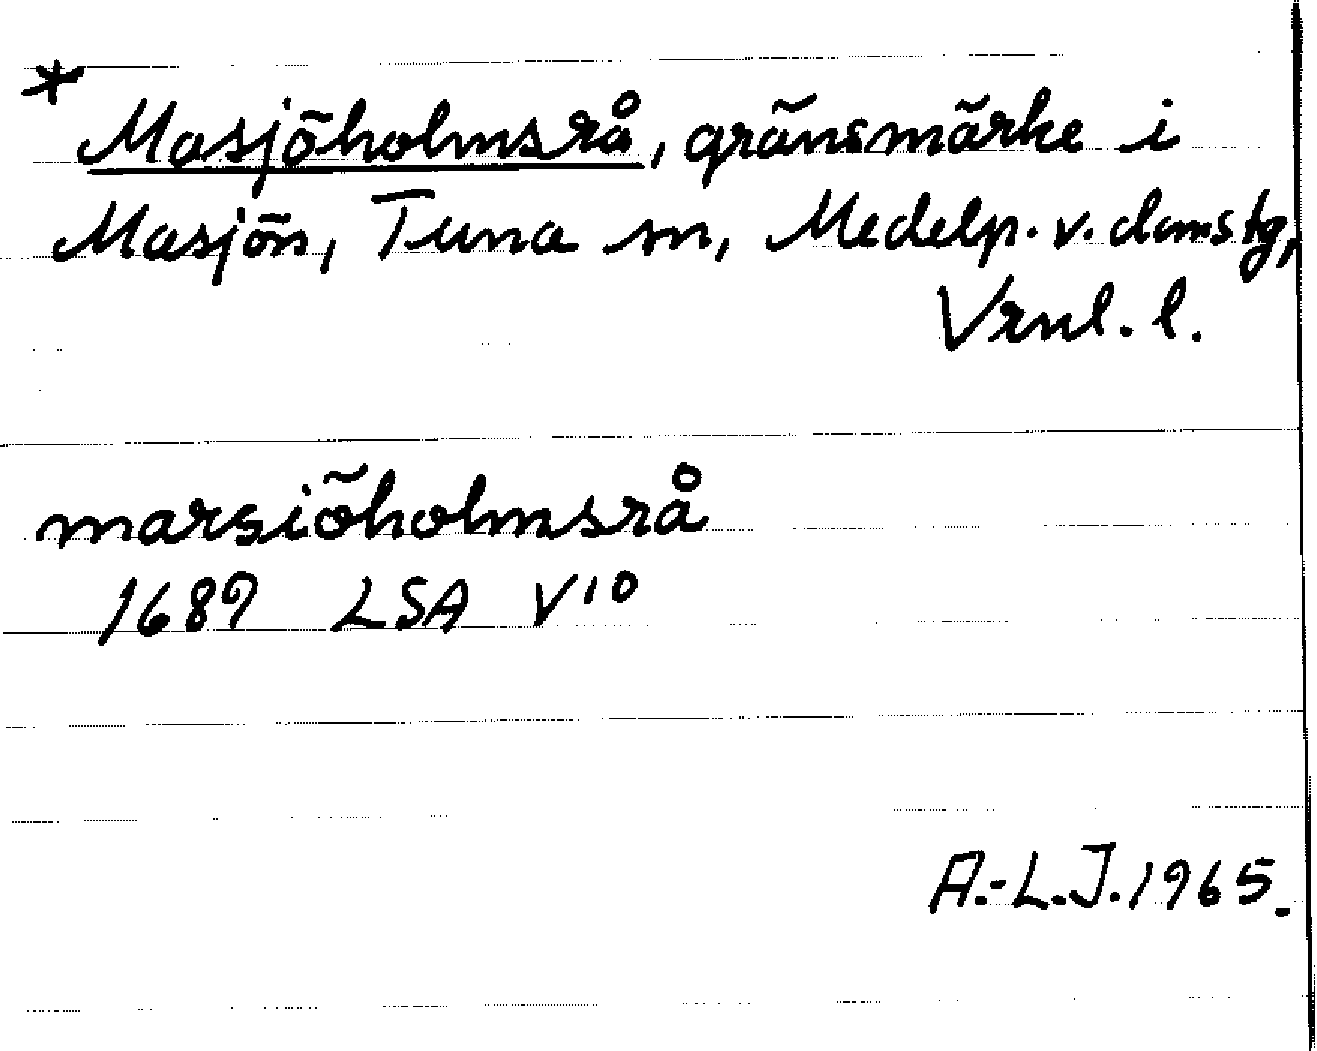 * Masjöholmsrå, gränsmärke i
Masjön, Tuna sn, Medelp. v. domstg,
Vrnl. l.
marsiöholmsrå
1689 LSA V10
A.-L.J. 1965.